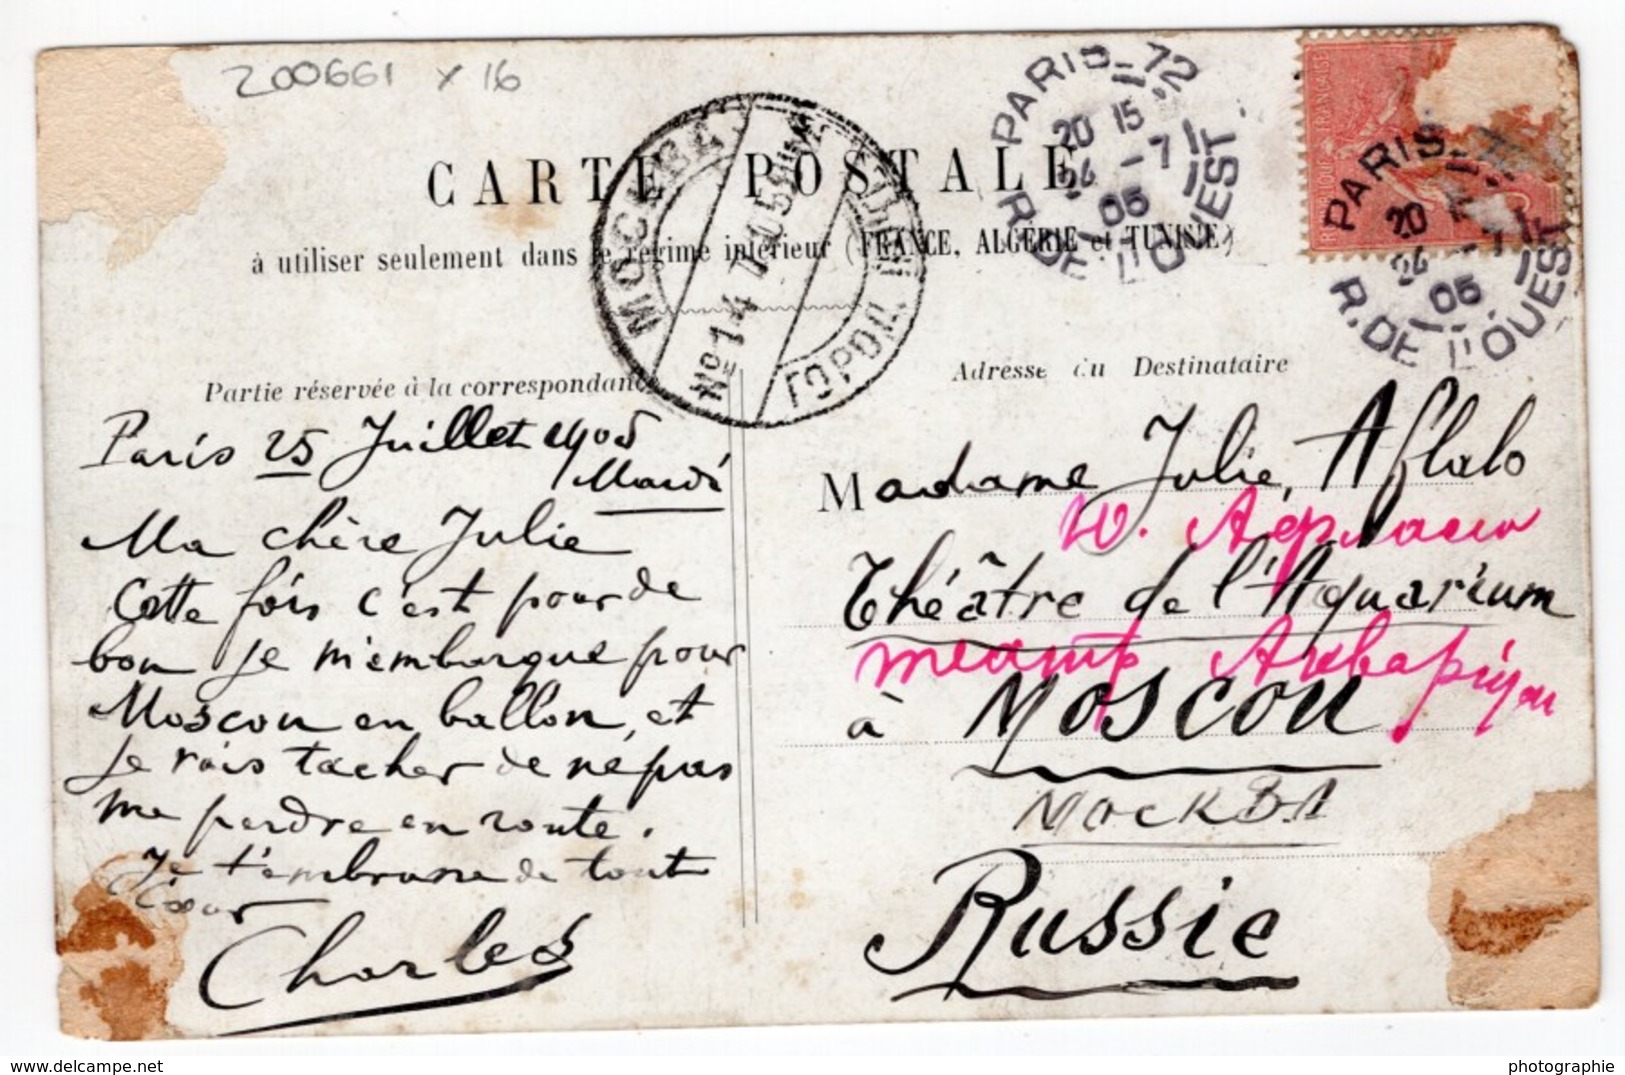 200661 x 16
CARTE POSTALE
à utiliser seulement dans le régime intérieur (FRANCE, ALGÉRIE et TUNISIE)
PARIS-72
20 15
24 - 7
05
R. DE L'OUEST
PARIS
20
24 - 7
05
R. DE L'OUEST
МОСКВА
14 7 05
ГОРОД.
Partie réservée à la correspondance
Paris 25 Juillet 1905
Mardi
Ma chère Julie
Cette fois c'est pour de
bon je m'embarque pour
Moscou en ballon, et
je vais tacher de ne pas
me perdre en route.
Je t'embrasse de tout
Cœur
Charles
Adresse du Destinataire
Madame Julie, Aflalo
Théâtre de l'Aquarium
театр Аквариум
à Moscou
МОСКВА
Russie
photographie